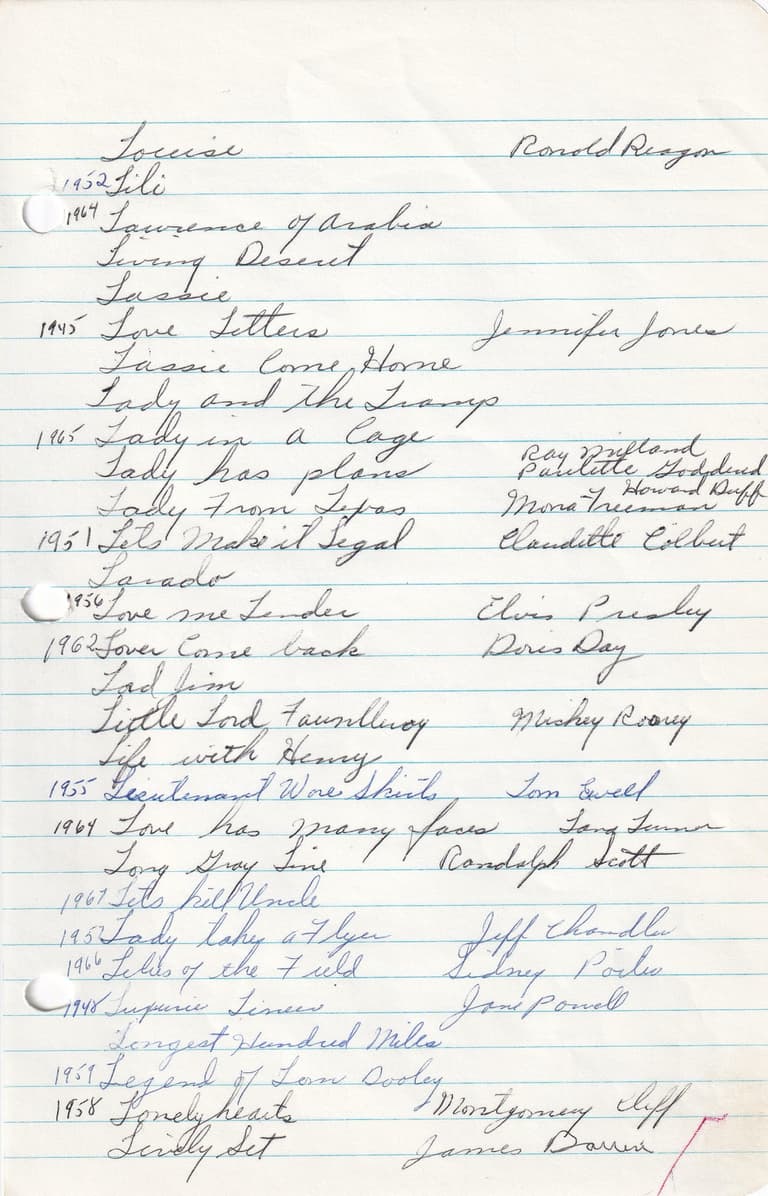 Louise Ronald Reagon
1952 Lili
1964 Lawrence of Arabia
Living Desert
Lassie
1945 Love Letters Jennifer Jones
Lassie Come Home
Lady and the Tramp
1965 Lady in a Cage
Lady has plans Ray Milland Paulette Goddard
Lady From Texas Howard Duff Mona Freeman
1951 Lets Make it Legal Claudette Colbert
Larado
1956 Love me Tender Elvis Presley
1962 Lover Come back Doris Day
Lord Jim
Little Lord Faunlleroy Mickey Rooney
Life with Henry
1955 Lieutenant Wore Skirts Tom Ewell
1964 Love has many faces Lana Turner
Long Gray Line Randolph Scott
1967 Lets kill Uncle
1957 Lady takes a Flyer Jeff Chandler
1966 Lilies of the Field Sidney
1948 Jane Powell
Longest Hundred Miles
1959 Legend of Tom Dooley
1958 Lonelyhearts Montgomery Cliff
Lively Set James Darren